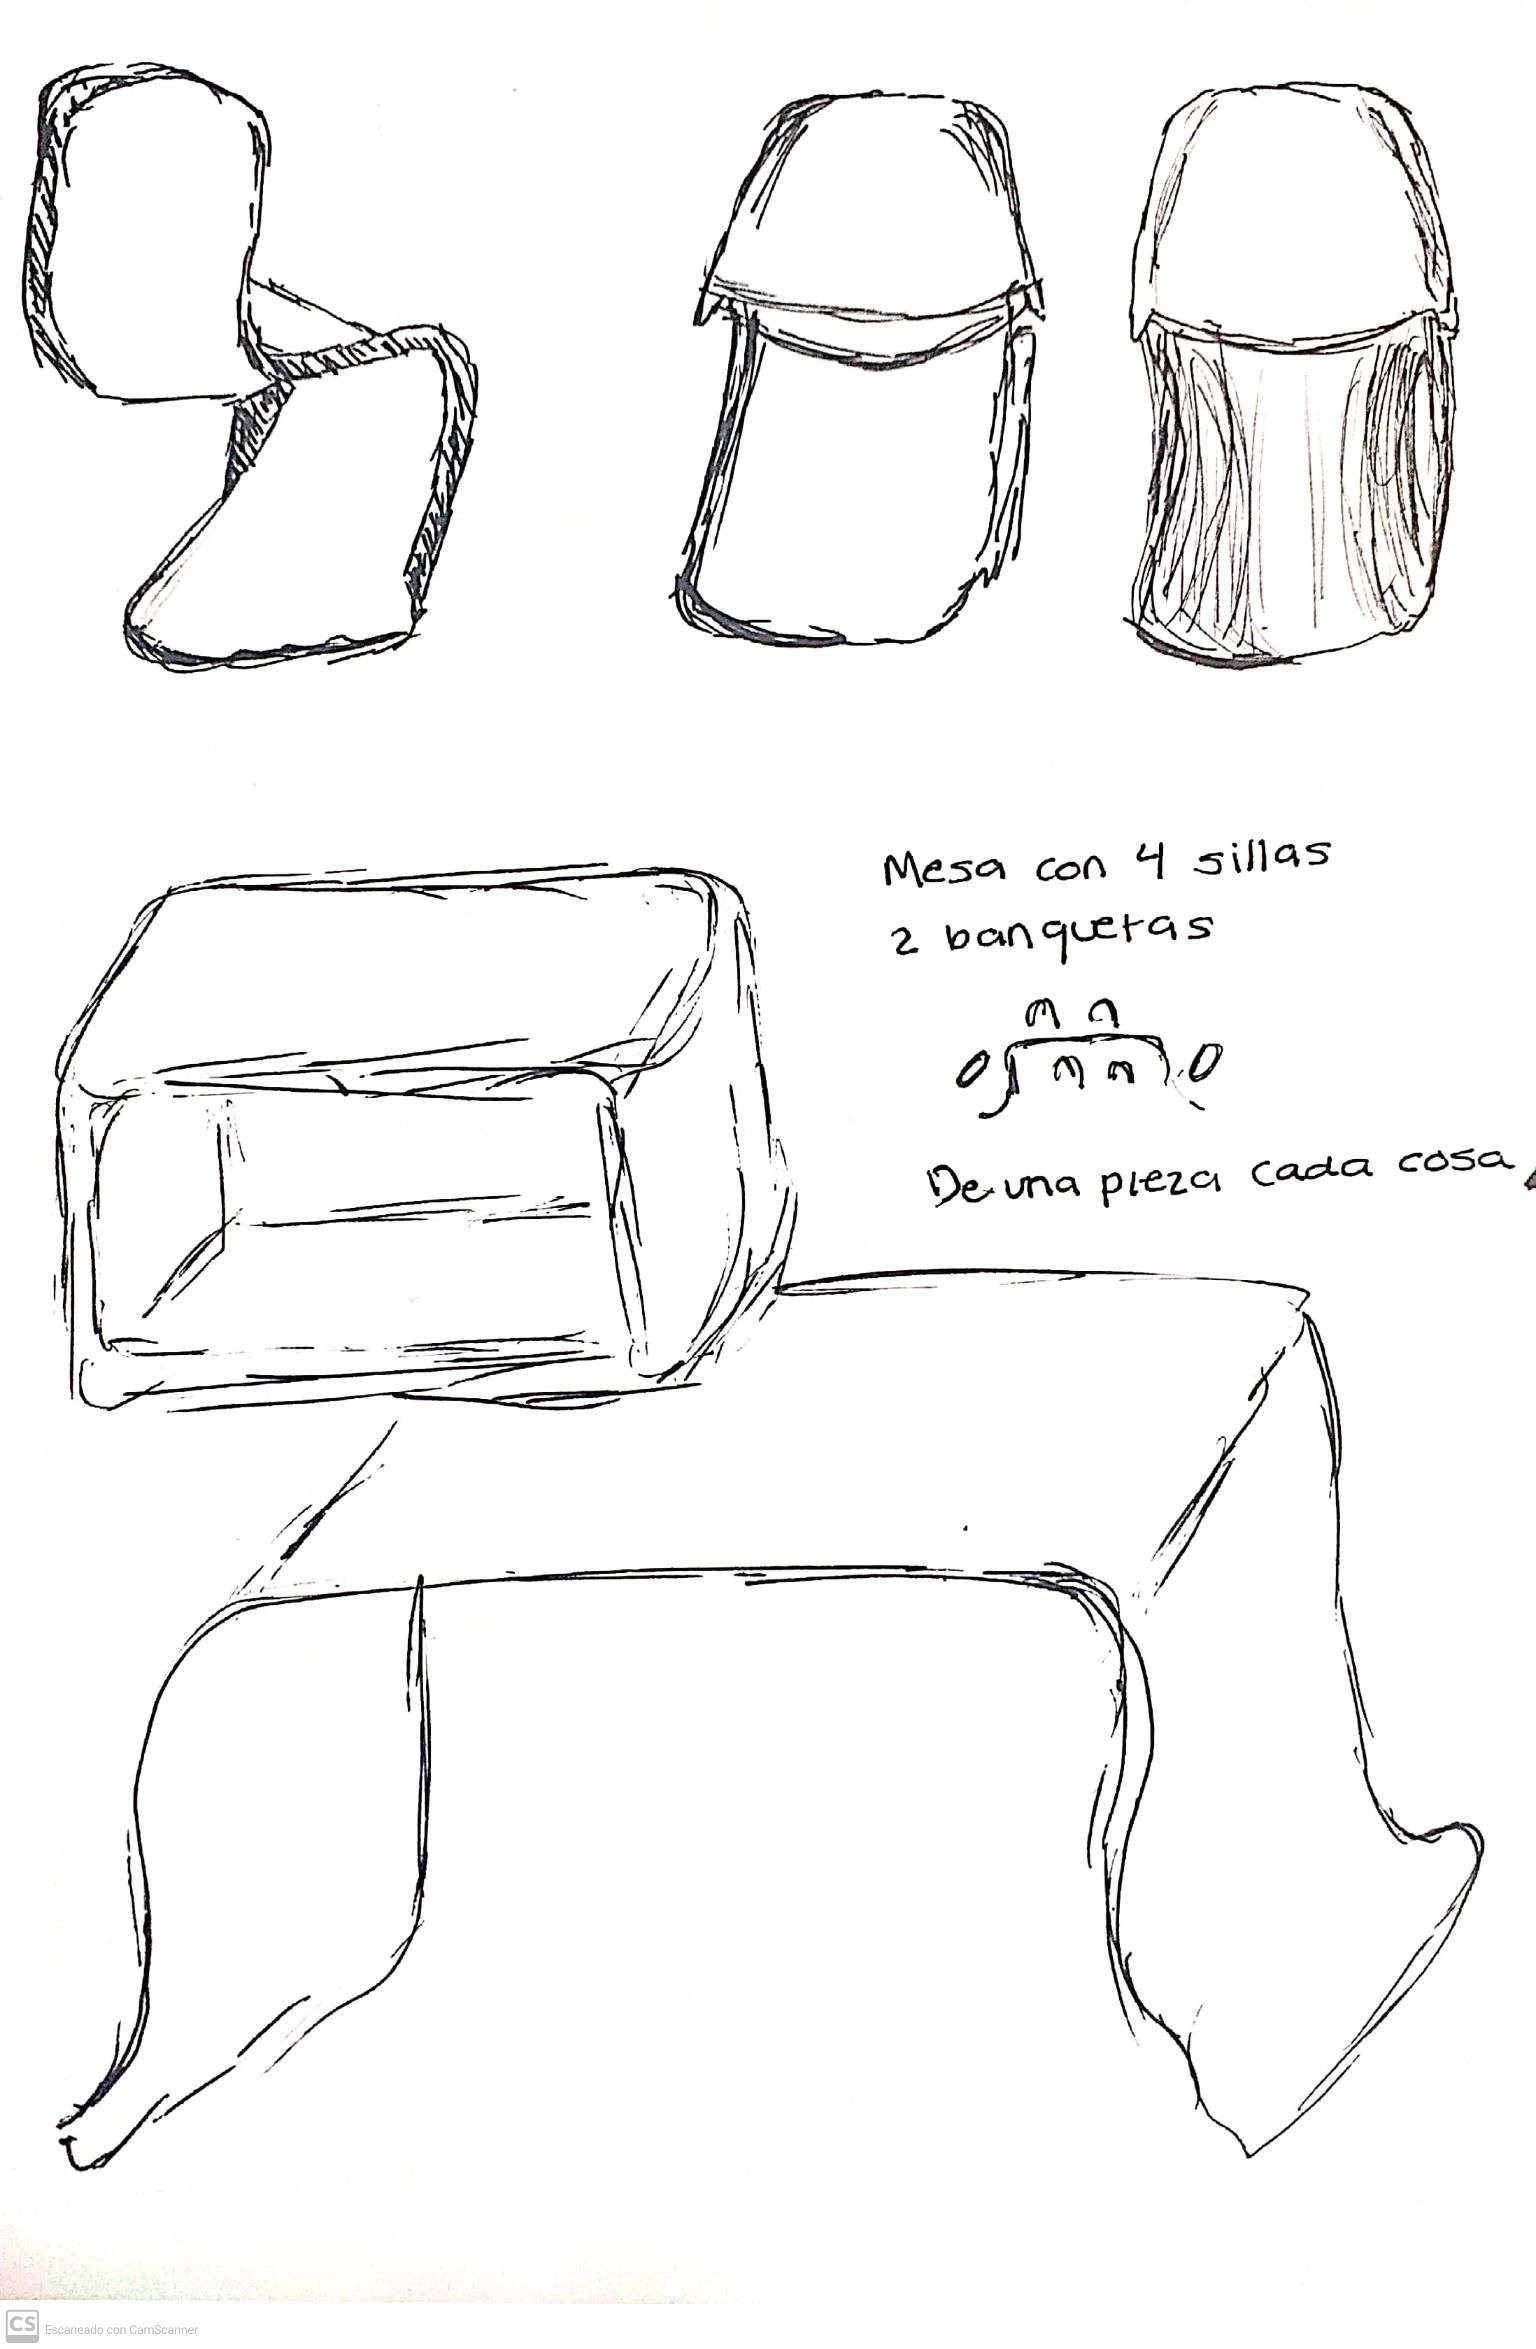 Mesa con 4 sillas
2 banquetas
De una pieza cada cosa
CS Escaneado con CamScanner